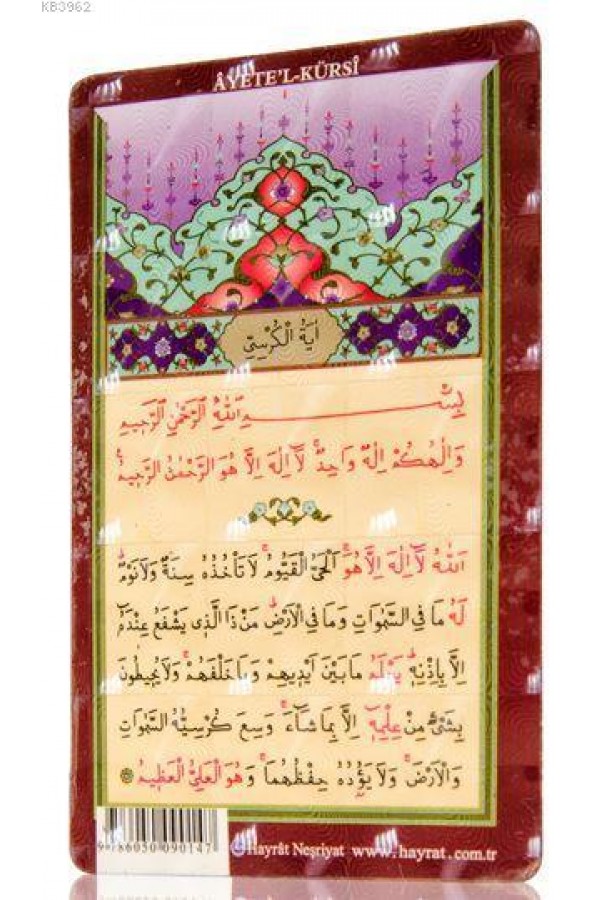 KB3962
ÂYETE'L-KÜRSÎ
اٰيَةُ الْكُرْسِيِّ
بِسْمِ اللّٰهِ الرَّحْمٰنِ الرَّحِيمِ
وَاِلٰهُكُمْ اِلٰهٌ وَاحِدٌۚ لَٓا اِلٰهَ اِلَّا هُوَ الرَّحْمٰنُ الرَّحِيمُ
اَللّٰهُ لَٓا اِلٰهَ اِلَّا هُوَۚ اَلْحَيُّ الْقَيُّومُۚ لَا تَأْخُذُهُ سِنَةٌ وَلَا نَوْمٌۜ
لَهُ مَا فِي السَّمٰوَاتِ وَمَا فِي الْاَرْضِۜ مَنْ ذَا الَّذ۪ي يَشْفَعُ عِنْدَهُٓ
اِلَّا بِاِذْنِه۪ۜ يَعْلَمُ مَا بَيْنَ اَيْد۪يهِمْ وَمَا خَلْفَهُمْۚ وَلَا يُح۪يطُونَ
بِشَيْءٍ مِنْ عِلْمِه۪ٓ اِلَّا بِمَا شَٓاءَۚ وَسِعَ كُرْسِيُّهُ السَّمٰوَاتِ
وَالْاَرْضَۚ وَلَا يَؤُ۫دُهُ حِفْظُهُمَاۚ وَهُوَ الْعَلِيُّ الْعَظ۪يمُ
9786050090147
Hayrât Neşriyat www.hayrat.com.tr